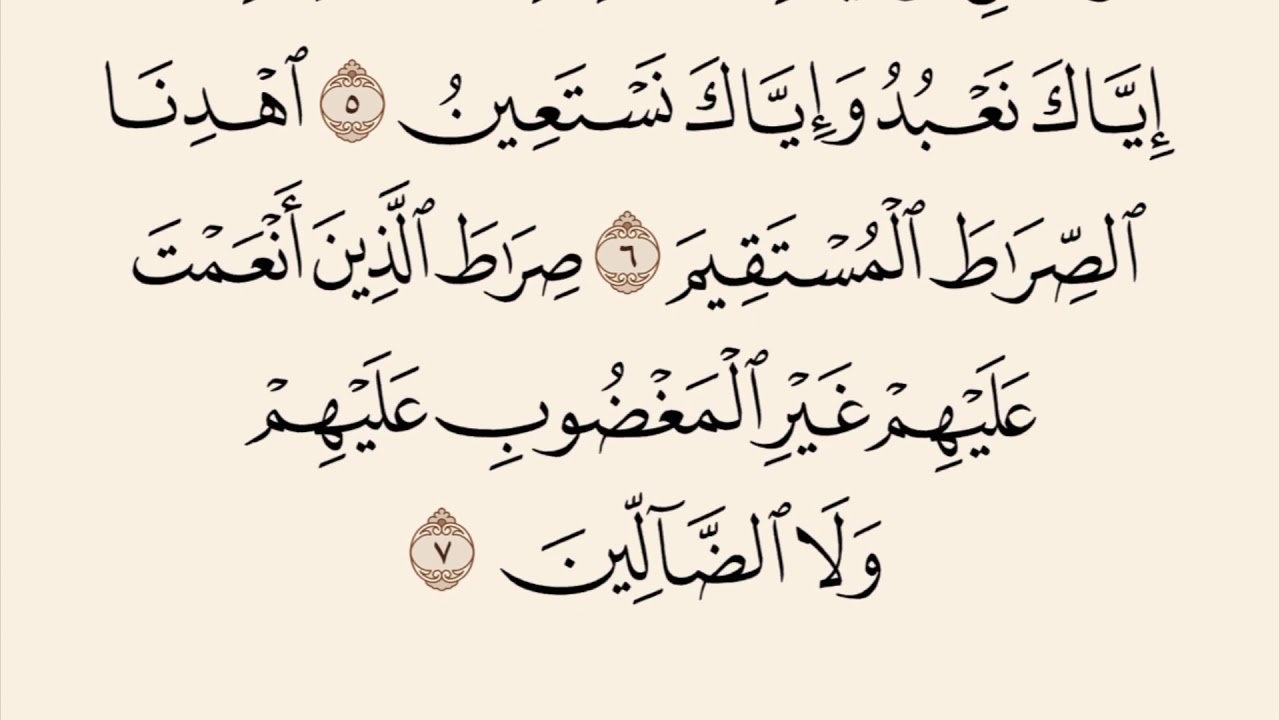 إِيَّاكَ نَعْبُدُ وَإِيَّاكَ نَسْتَعِينُ ٥ ٱهْدِنَا
ٱلصِّرَٰطَ ٱلْمُسْتَقِيمَ ٦ صِرَٰطَ ٱلَّذِينَ أَنْعَمْتَ
عَلَيْهِمْ غَيْرِ ٱلْمَغْضُوبِ عَلَيْهِمْ
وَلَا ٱلضَّآلِّينَ ٧